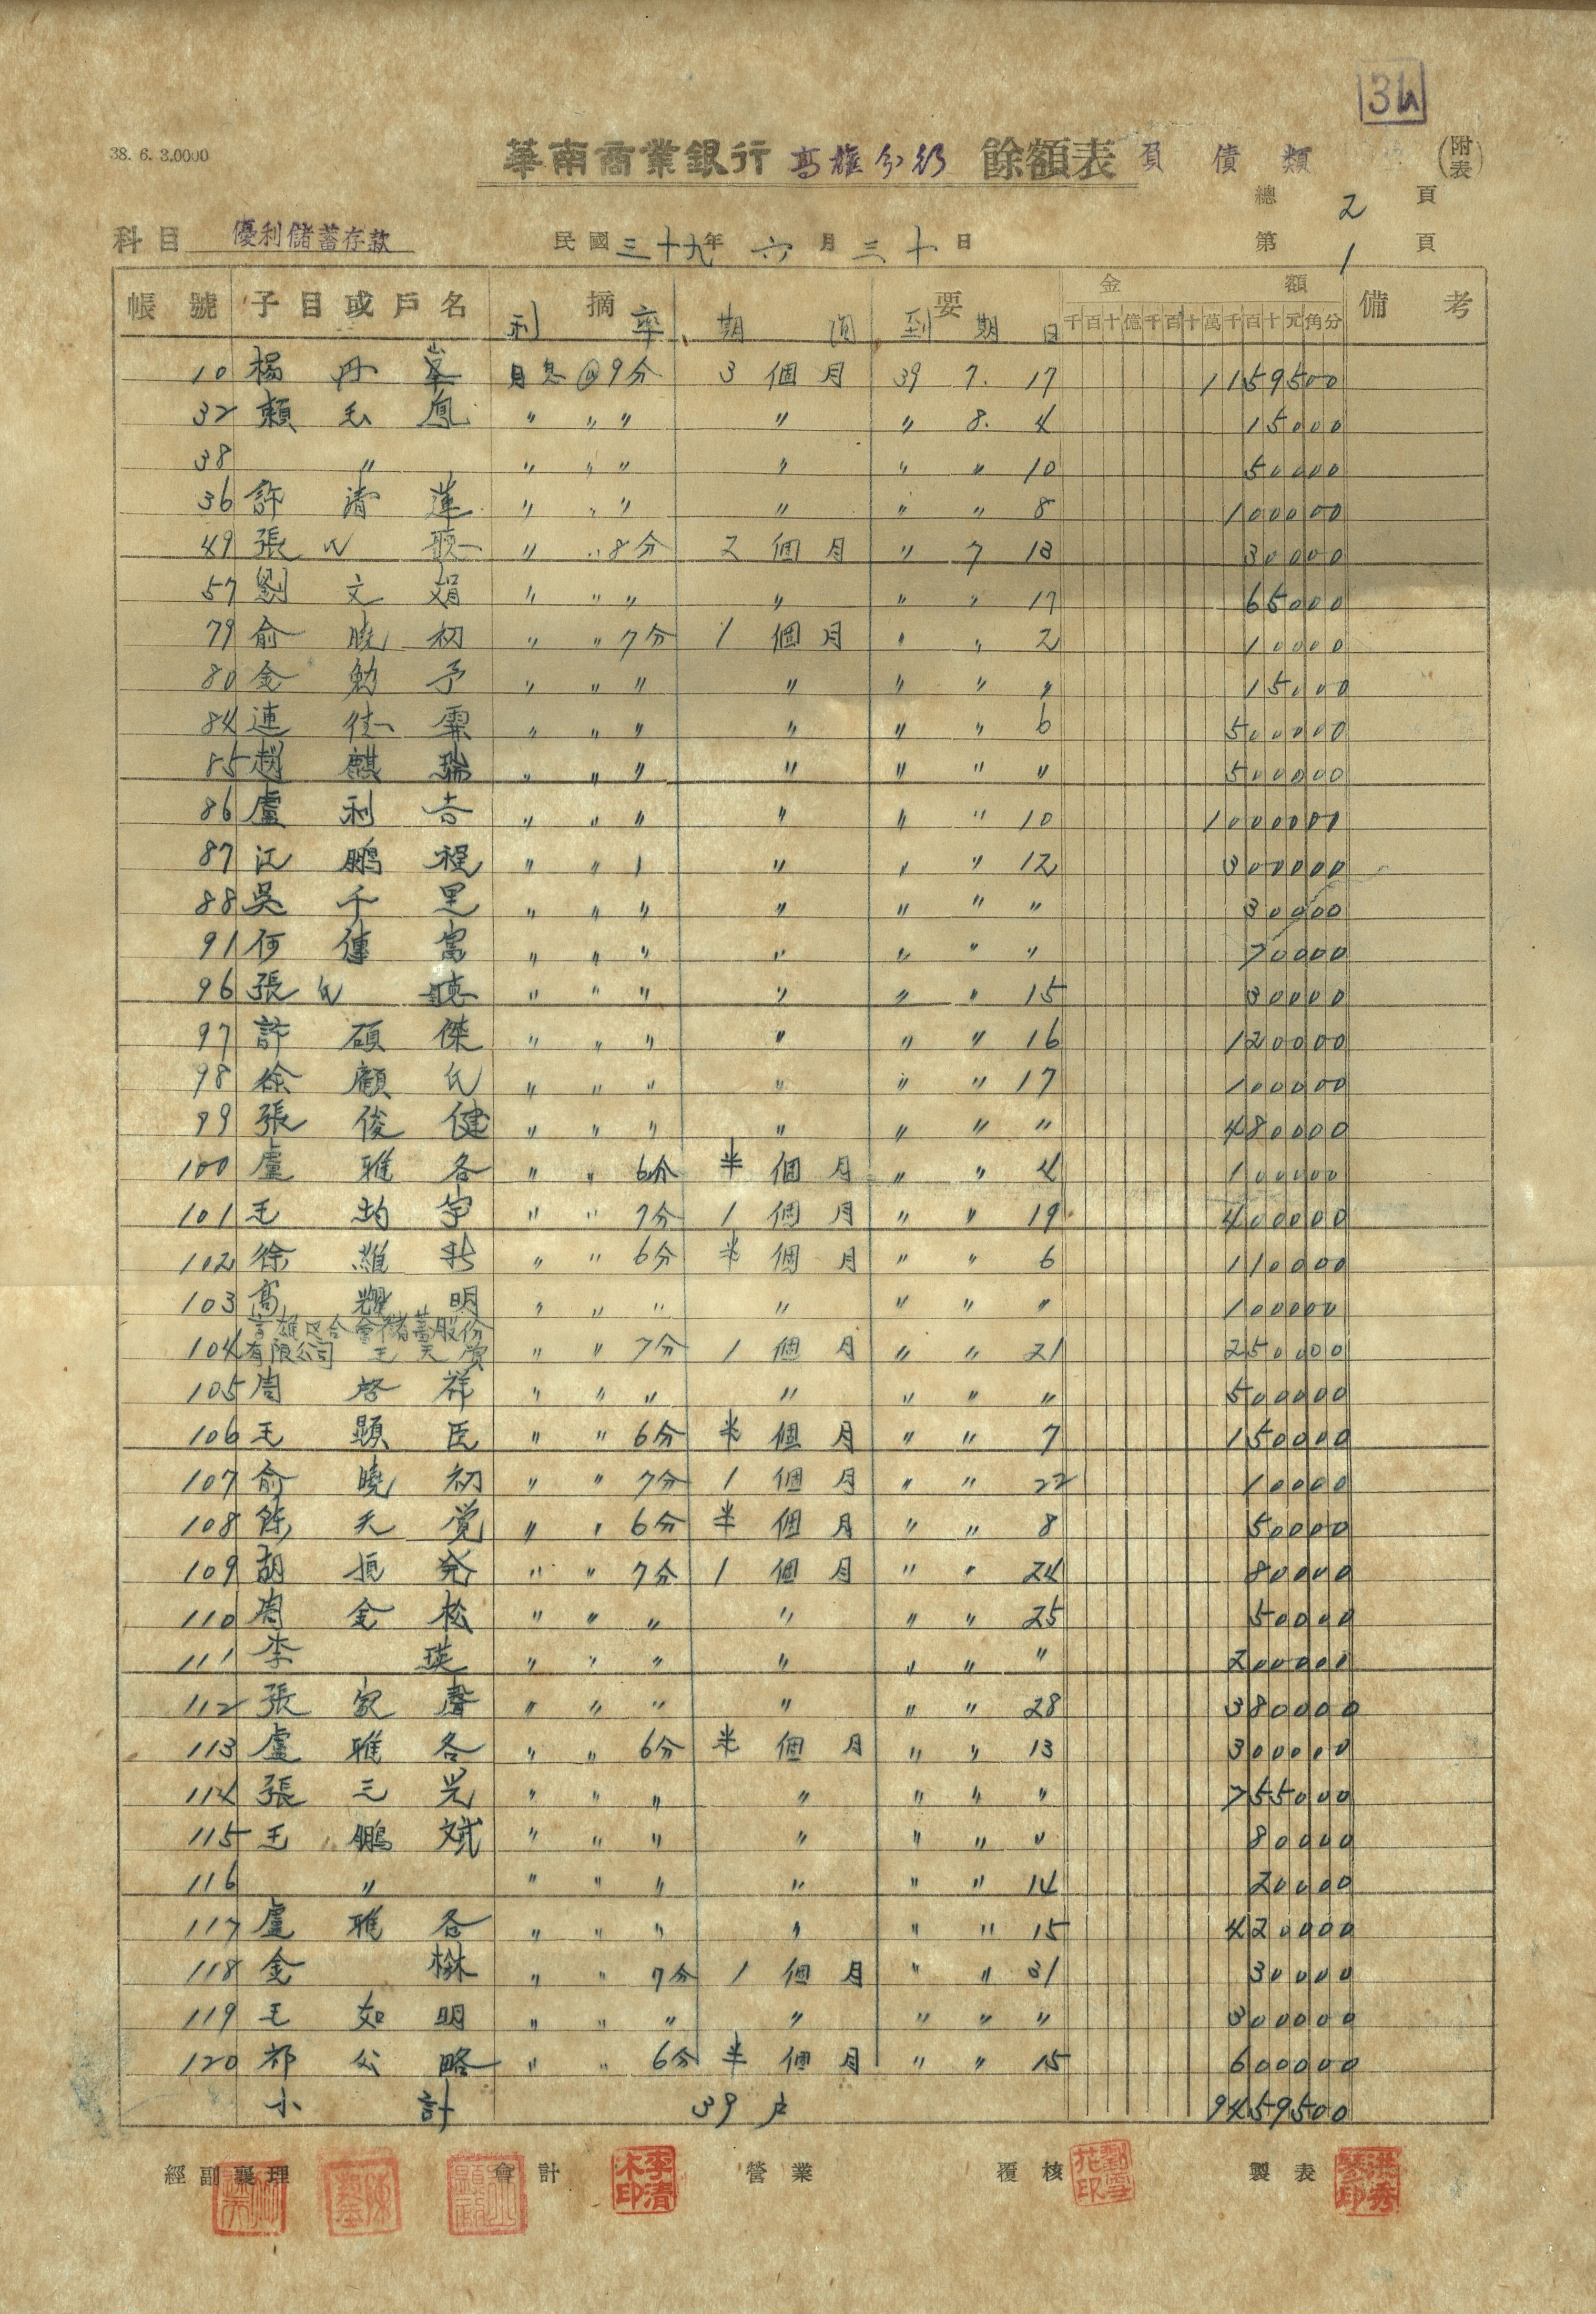 38. 6. 3.0000
華南商業銀行 高雄分行 餘額表 負債類 (附表)
總 2 頁
科目 優利儲蓄存款 民國 三十九年 六月 三十日 第 1 頁
帳號 子目或戶名 摘要 金額 備考
利率 期間 到期日 千百十億千百十萬千百十元角分
10 楊丹峯 月息@9分 3個月 39 7. 17 1159500
32 賴玉鳳 〃 〃 〃 〃 〃 8. 4 15000
38 〃 〃 〃 〃 〃 〃 〃 10 50000
36 許清蓮 〃 〃 〃 〃 〃 〃 8 100000
49 張氏 〃 〃 8分 2個月 〃 7 13 30000
57 劉文娟 〃 〃 〃 〃 〃 〃 17 65000
79 俞曉初 〃 〃 7分 1個月 〃 〃 2 10000
80 金勉予 〃 〃 〃 〃 〃 〃 〃 15000
84 連 〃 〃 〃 〃 〃 〃 6 500000
85 趙麒瑞 〃 〃 〃 〃 〃 〃 〃 500000
86 盧利吉 〃 〃 〃 〃 〃 〃 10 1000000
87 江鵬程 〃 〃 〃 〃 〃 〃 12 300000
88 吳千里 〃 〃 〃 〃 〃 〃 〃 30000
91 何傳富 〃 〃 〃 〃 〃 〃 〃 70000
96 張氏聽 〃 〃 〃 〃 〃 〃 15 30000
97 許碩傑 〃 〃 〃 〃 〃 〃 16 120000
98 徐顧氏 〃 〃 〃 〃 〃 〃 17 100000
99 張俊健 〃 〃 〃 〃 〃 〃 〃 480000
100 盧雅各 〃 〃 6分 半個月 〃 〃 4 100000
101 王均宇 〃 〃 7分 1個月 〃 〃 19 400000
102 徐維新 〃 〃 6分 半個月 〃 〃 6 110000
103 高耀明 〃 〃 〃 〃 〃 〃 〃 100000
高雄區合會儲蓄股份
104 有限公司 王天賞 〃 〃 7分 1個月 〃 〃 21 250000
105 周啓祥 〃 〃 〃 〃 〃 〃 〃 500000
106 王顯臣 〃 〃 6分 半個月 〃 〃 7 150000
107 俞曉初 〃 〃 7分 1個月 〃 〃 22 10000
108 天覺 〃 〃 6分 半個月 〃 〃 8 50000
109 胡垣発 〃 〃 7分 1個月 〃 〃 24 80000
110 周金松 〃 〃 〃 〃 〃 〃 25 50000
111 李瑛 〃 〃 〃 〃 〃 〃 〃 200000
112 張家聲 〃 〃 〃 〃 〃 〃 28 380000
113 盧雅各 〃 〃 6分 半個月 〃 〃 13 300000
114 張三光 〃 〃 〃 〃 〃 〃 〃 755000
115 王鵬斌 〃 〃 〃 〃 〃 〃 〃 80000
116 〃 〃 〃 〃 〃 〃 〃 14 20000
117 盧雅各 〃 〃 〃 〃 〃 〃 15 420000
118 金楙 〃 〃 7分 1個月 〃 〃 31 30000
119 王如明 〃 〃 〃 〃 〃 〃 〃 300000
120 祁公略 〃 〃 6分 半個月 〃 〃 15 600000
小計 39戶 9459500
經副襄理 會計 李清木印 營業 覆核 劉雪花印 製表 洪秀琴印